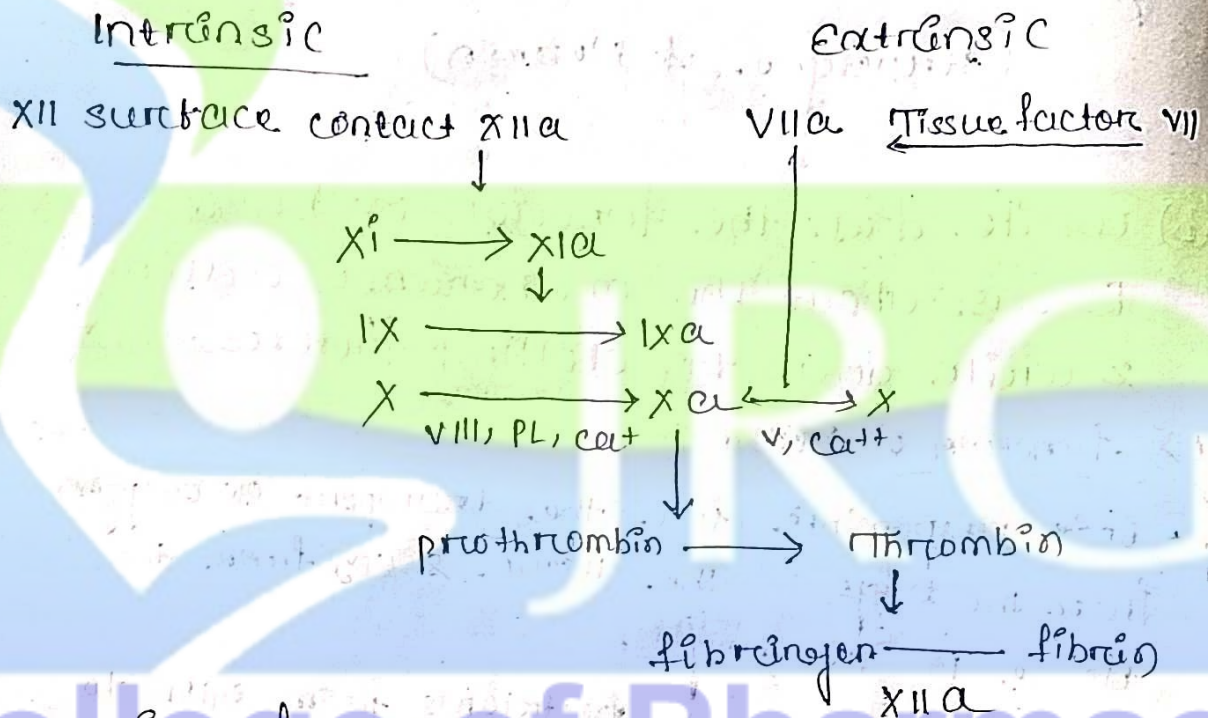 Intrinsic Extrinsic
XII surface contact XIIa VIIa Tissue factor VII
↓
Xi → XIa
↓
IX → IXa
X → Xa ↔ X
VIII, PL, ca+ V, ca++
↓
prothrombin → Thrombin
↓
fibringen — fibrin
XIIa
JRG
College of Pharmac